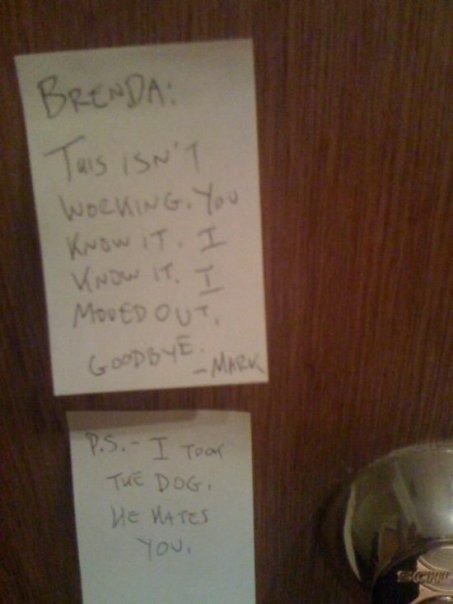 BRENDA:
THIS ISN'T
WORKING. YOU
KNOW IT. I
KNOW IT. I
MOVED OUT.
GOODBYE.
-MARK
P.S.- I TOOK
THE DOG.
HE HATES
YOU.